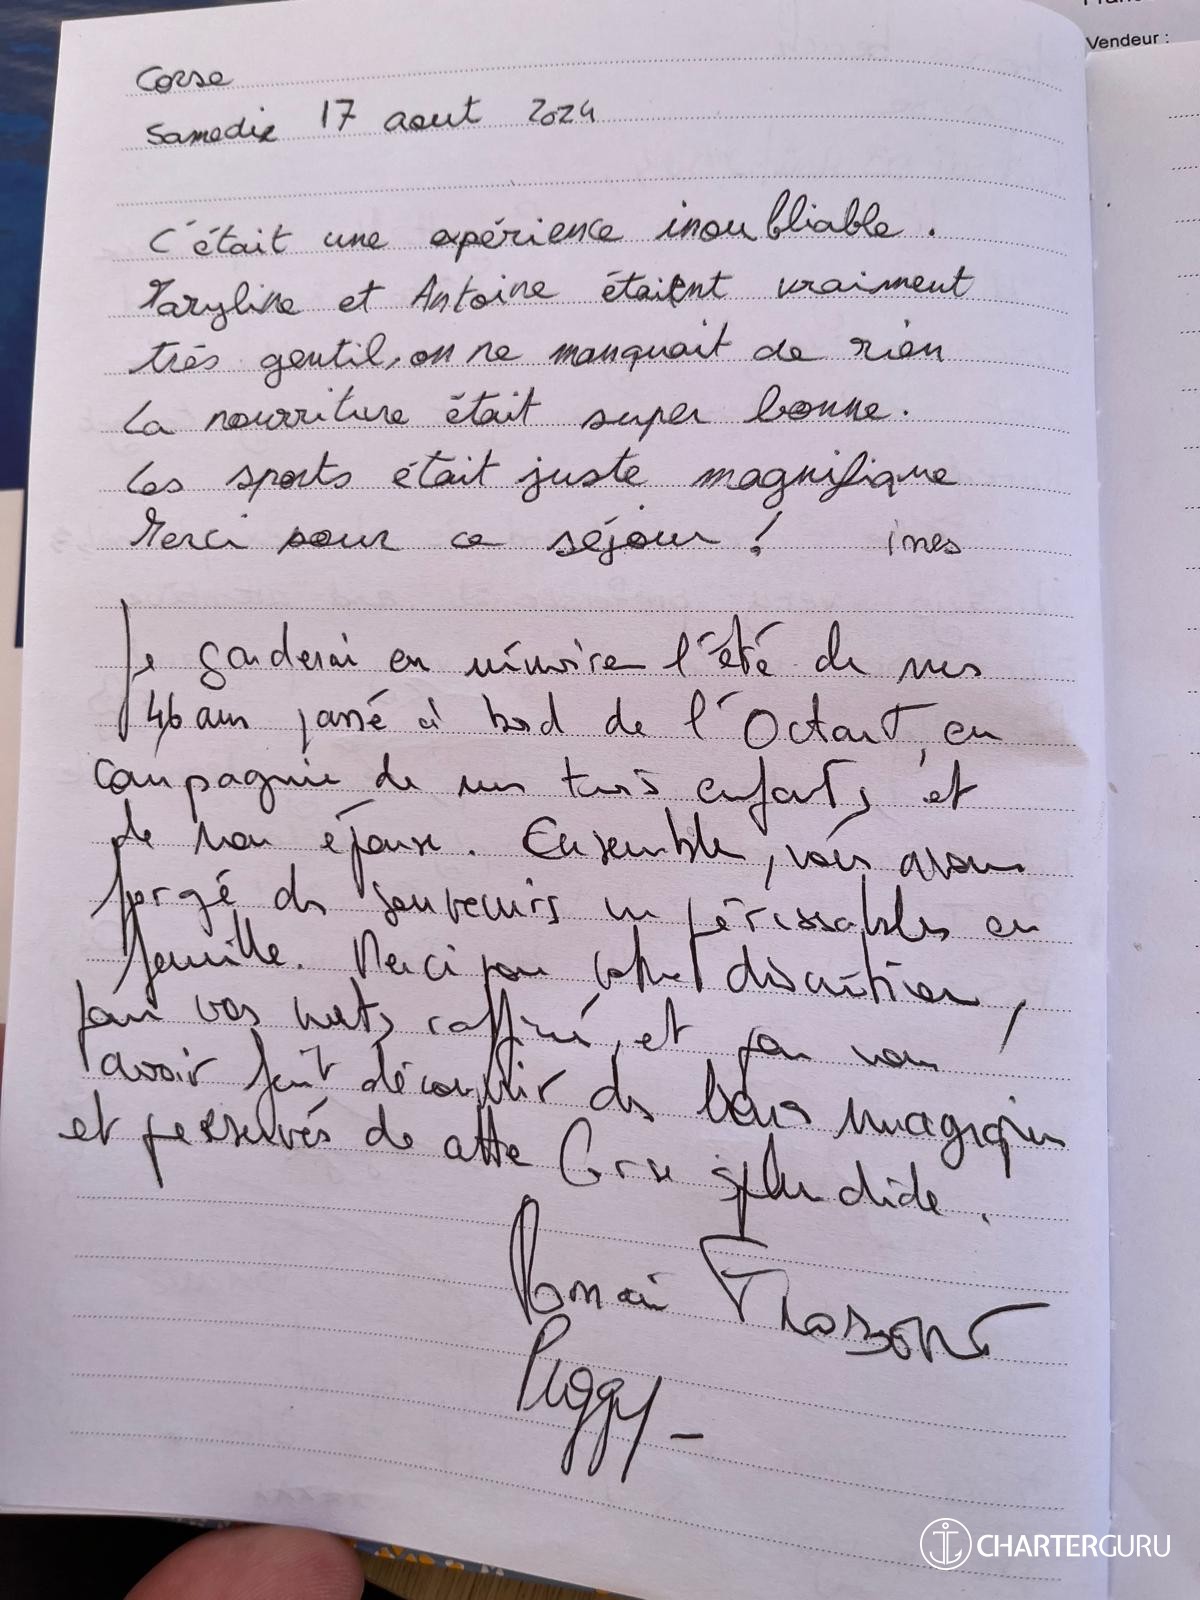 Vendeur :
Corse
Samedie 17 aout 2024
C'était une expérience inoubliable.
Maryline et Antoine étaient vraiment
très gentil, on ne manquait de rien
La nourriture était super bonne.
Les sports était juste magnifique
Merci pour ce séjour ! ines
Je garderai en mémoire l'été de mes
46 ans passé à bord de l'Octant, en
compagnie de mes trois enfants, et
de mon épouse. Ensemble, nous avons
forgé des souvenirs impérissables en
famille. Merci pour votre discrétion,
pour vos mets raffiné, et pour nous
avoir fait découvrir des lieux magiques
et preservés de cette Corse splendide.
Romain
Peggy -
CHARTERGURU